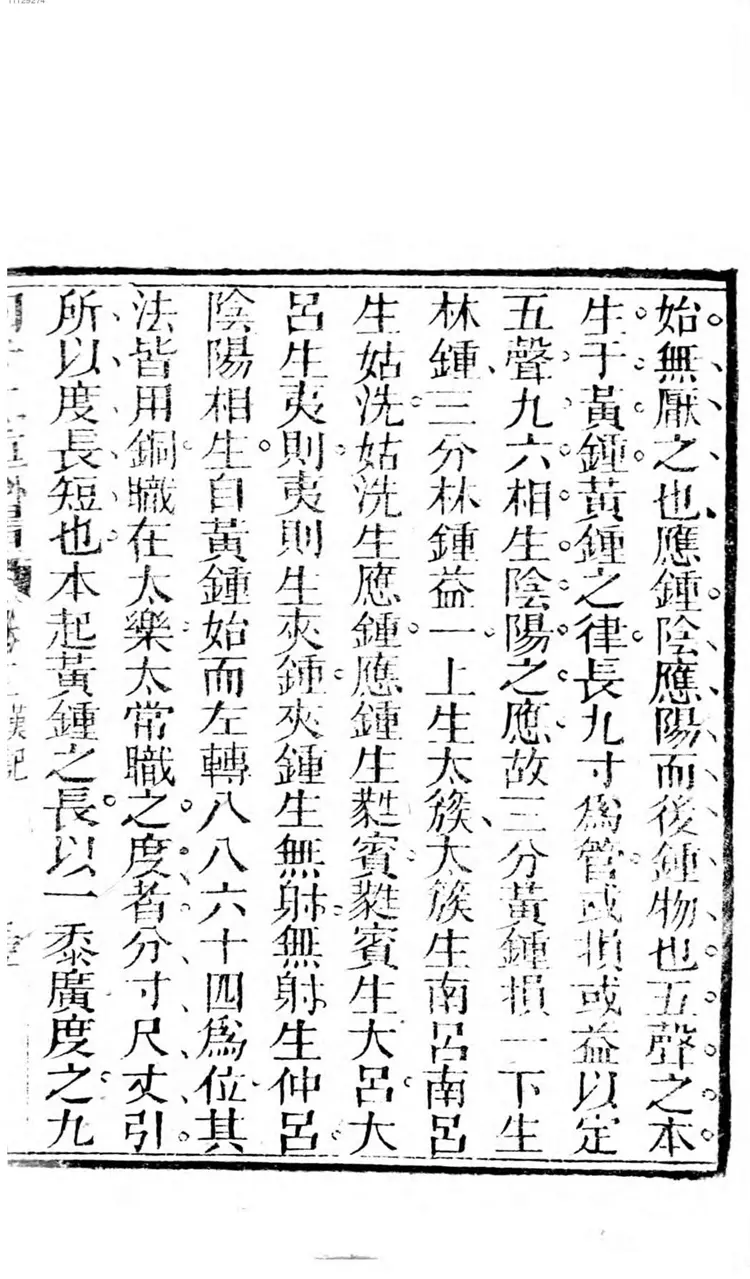 11129274
始無厭之也應鍾陰應陽而後鍾物也五聲之本
生于黃鍾黃鍾之律長九寸爲管或損或益以定
五聲九六相生陰陽之應故三分黃鍾損一下生
林鍾三分林鍾益一上生太簇太簇生南呂南呂
生姑洗姑洗生應鍾應鍾生蕤賓蕤賓生大呂大
呂生夷則夷則生夾鍾夾鍾生無射無射生仲呂
陰陽相生自黃鍾始而左轉八八六十四爲位其
法皆用銅職在太樂太常職之度者分寸尺丈引
所以度長短也本起黃鍾之長以一黍廣度之九
漢記